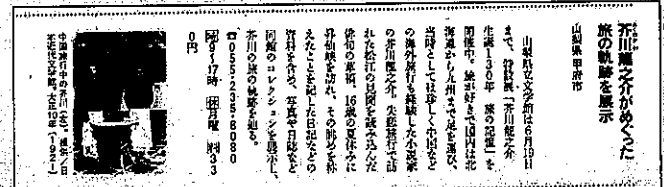 芥川龍之介がめぐった
旅の軌跡を展示
山梨県甲府市
山梨県立文学館は6月19日
まで、特設展「芥川龍之介
生誕130年 旅の記憶」を
開催中。旅が好きで国内は北
海道から九州まで足を運び、
当時としては珍しく中国など
の海外旅行も経験した小説家
の芥川龍之介。失恋旅行で訪
れた松江の見聞を詠み込んだ
俳句の草稿、16歳の夏休みに
昇仙峡を訪れ、その眺めを称
えたことを記した日記などの
資料を含め、写真や日誌など
同館のコレクションを展示し、
芥川の旅の軌跡を辿る。
☎055・235・8080
時9~17時 休月曜 料33
0円
中国旅行中の芥川(左)。提供/日
本近代文学館。大正10年(1921)